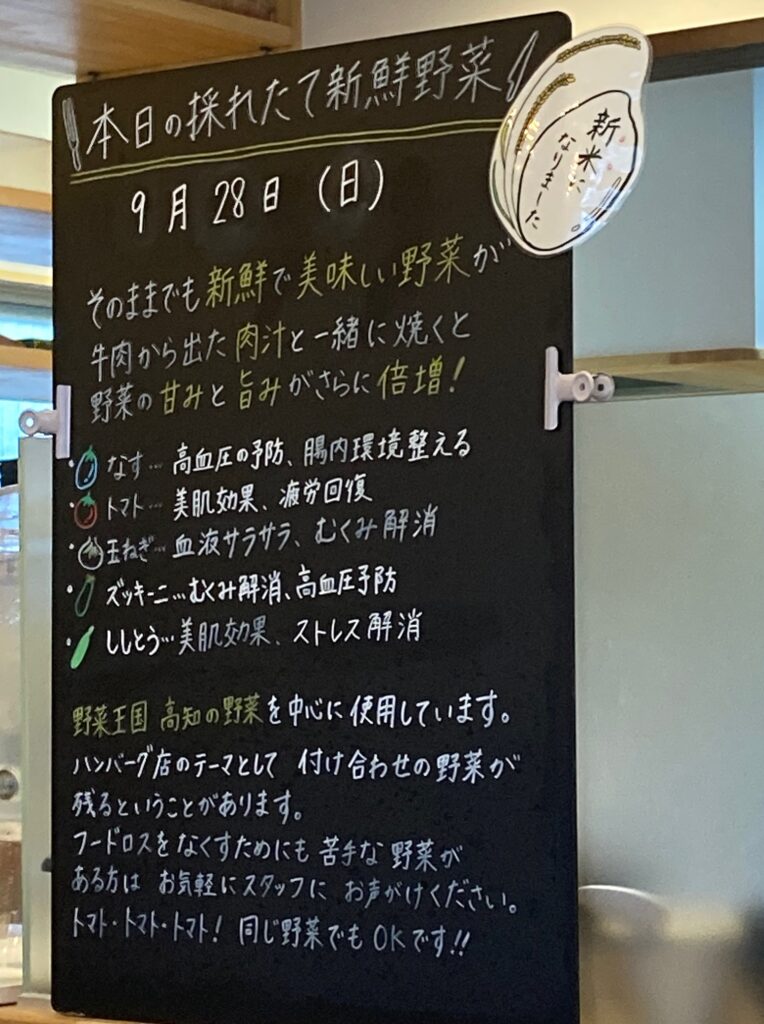 本日の採れたて新鮮野菜
新米に
なりました
9月28日（日）
そのままでも新鮮で美味しい野菜が
牛肉から出た肉汁と一緒に焼くと
野菜の甘みと旨みがさらに倍増！
・なす…高血圧の予防、腸内環境整える
・トマト…美肌効果、疲労回復
・玉ねぎ…血液サラサラ、むくみ解消
・ズッキーニ…むくみ解消、高血圧予防
・ししとう…美肌効果、ストレス解消
野菜王国 高知の野菜を中心に使用しています。
ハンバーグ店のテーマとして 付け合わせの野菜が
残るということがあります。
フードロスをなくすためにも苦手な野菜が
ある方は お気軽にスタッフに お声がけください。
トマト・トマト・トマト！ 同じ野菜でもOKです!!